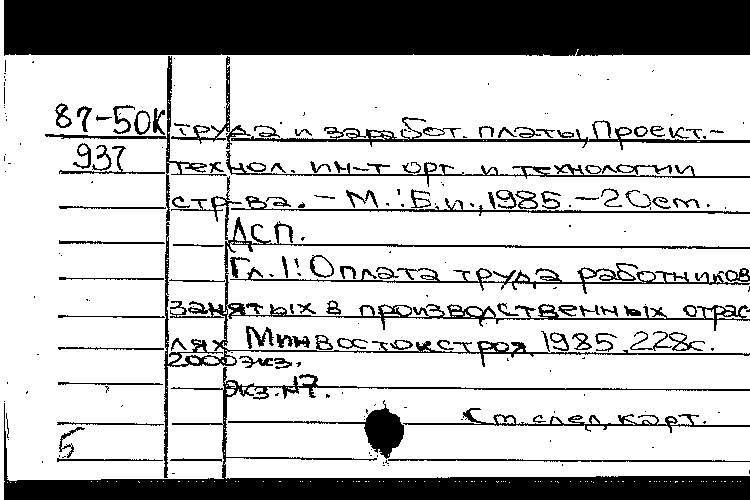 87-50К труда и заработ. платы, Проект.-
937 технол. ин-т орг. и технологии
стр-ва. - М.: Б.и., 1985. - 20см.
ДСП.
Гл. 1: Оплата труда работников,
занятых в производственных отрас
лях Минвостокстроя. 1985. 228с.
2000экз.
Экз. №7.
См. след. карт.
5